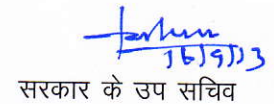 16/9/13
सरकार के उप सचिव